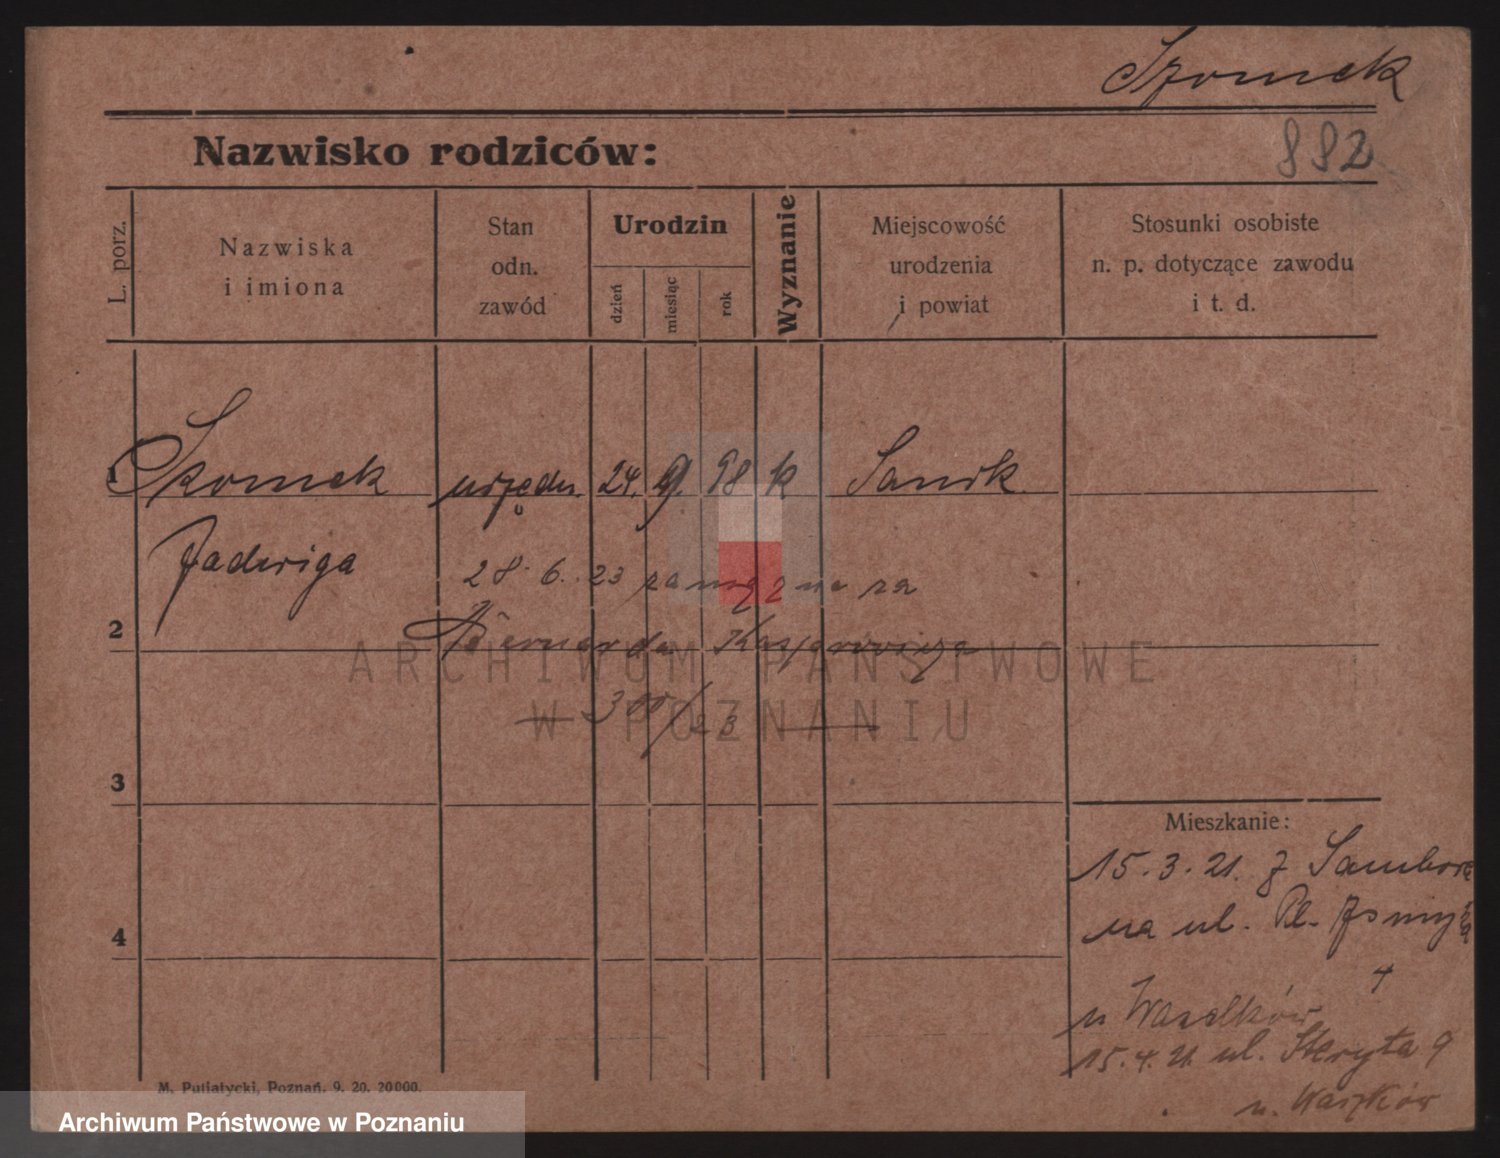 Szomek
882
Nazwisko rodziców:
L. porz.
Nazwiska
i imiona
Stan
odn.
zawód
Urodzin
dzień
miesiąc
rok
Wyznanie
Miejscowość
urodzenia
i powiat
Stosunki osobiste
n. p. dotyczące zawodu
i t. d.
1 Szomek urzędn. 24. 9. 98 k Sanok
Jadwiga
28. 6. 23 zamężna za
2 Bernarda Kasprowicza
ARCHIWUM PAŃSTWOWE
W POZNANIU
3
Mieszkanie:
15. 3. 21. z Sambora
na ul. Pl.
4
4
u
15. 4. 21. ul. 9
u.
M. Putiatycki, Poznań. 9. 20. 20000.
Archiwum Państwowe w Poznaniu